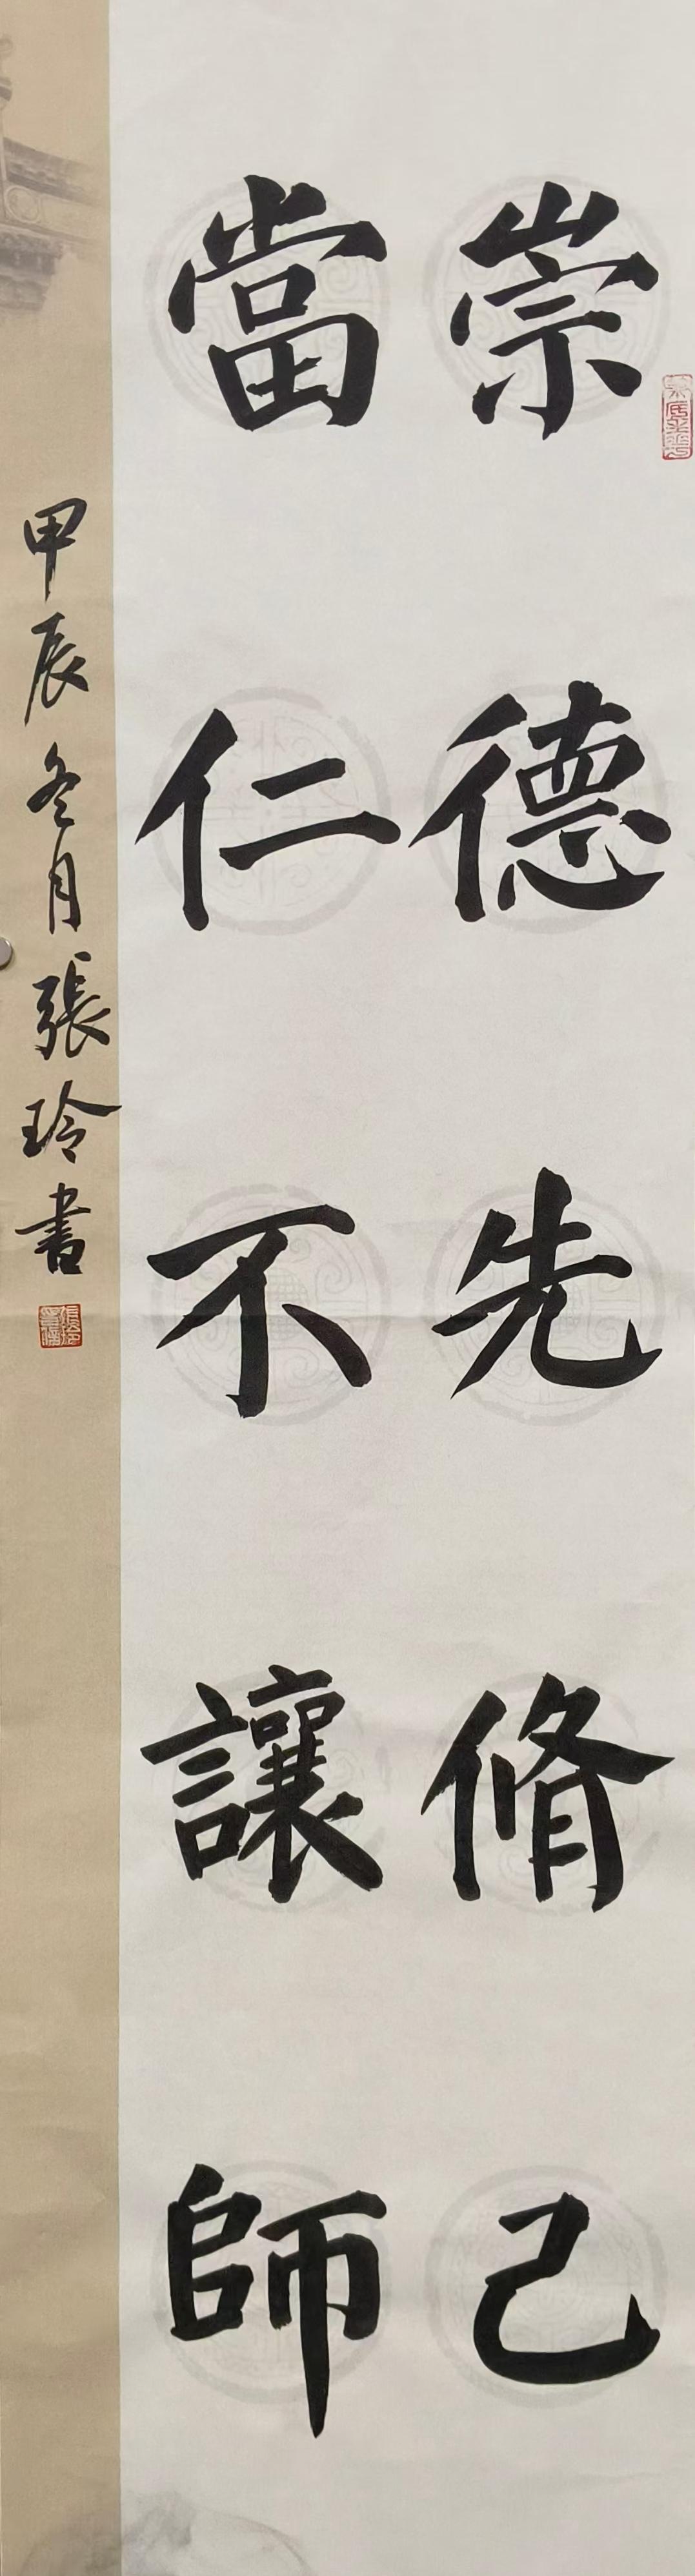 崇德先脩己
當仁不讓師
甲辰冬月張玲書